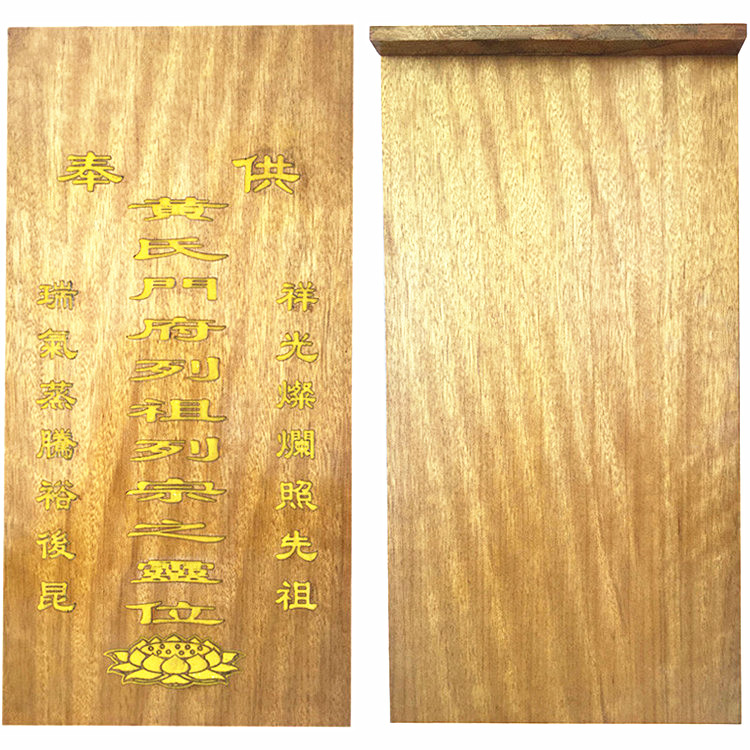 供奉
祥光燦爛照先祖
黄氏門府列祖列宗之靈位
瑞氣蒸騰裕後昆